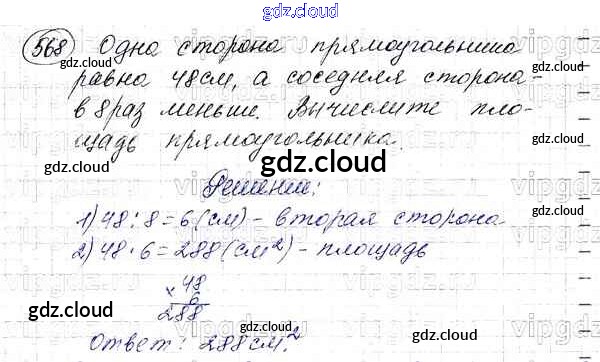 gdz.cloud
568 Одна сторона прямоугольника
равна 48см, а соседняя сторона-
в 8 раз меньше. Вычислите пло-
щадь прямоугольника.
gdz.cloud
gdz.cloud
gdz.cloud
Решение:
1) 48:8=6(см) - вторая сторона
2) 48·6=288(см²) - площадь
gdz.cloud
× 48
6
288
gdz.cloud
gdz.cloud
Ответ: 288см².
gdz.cloud